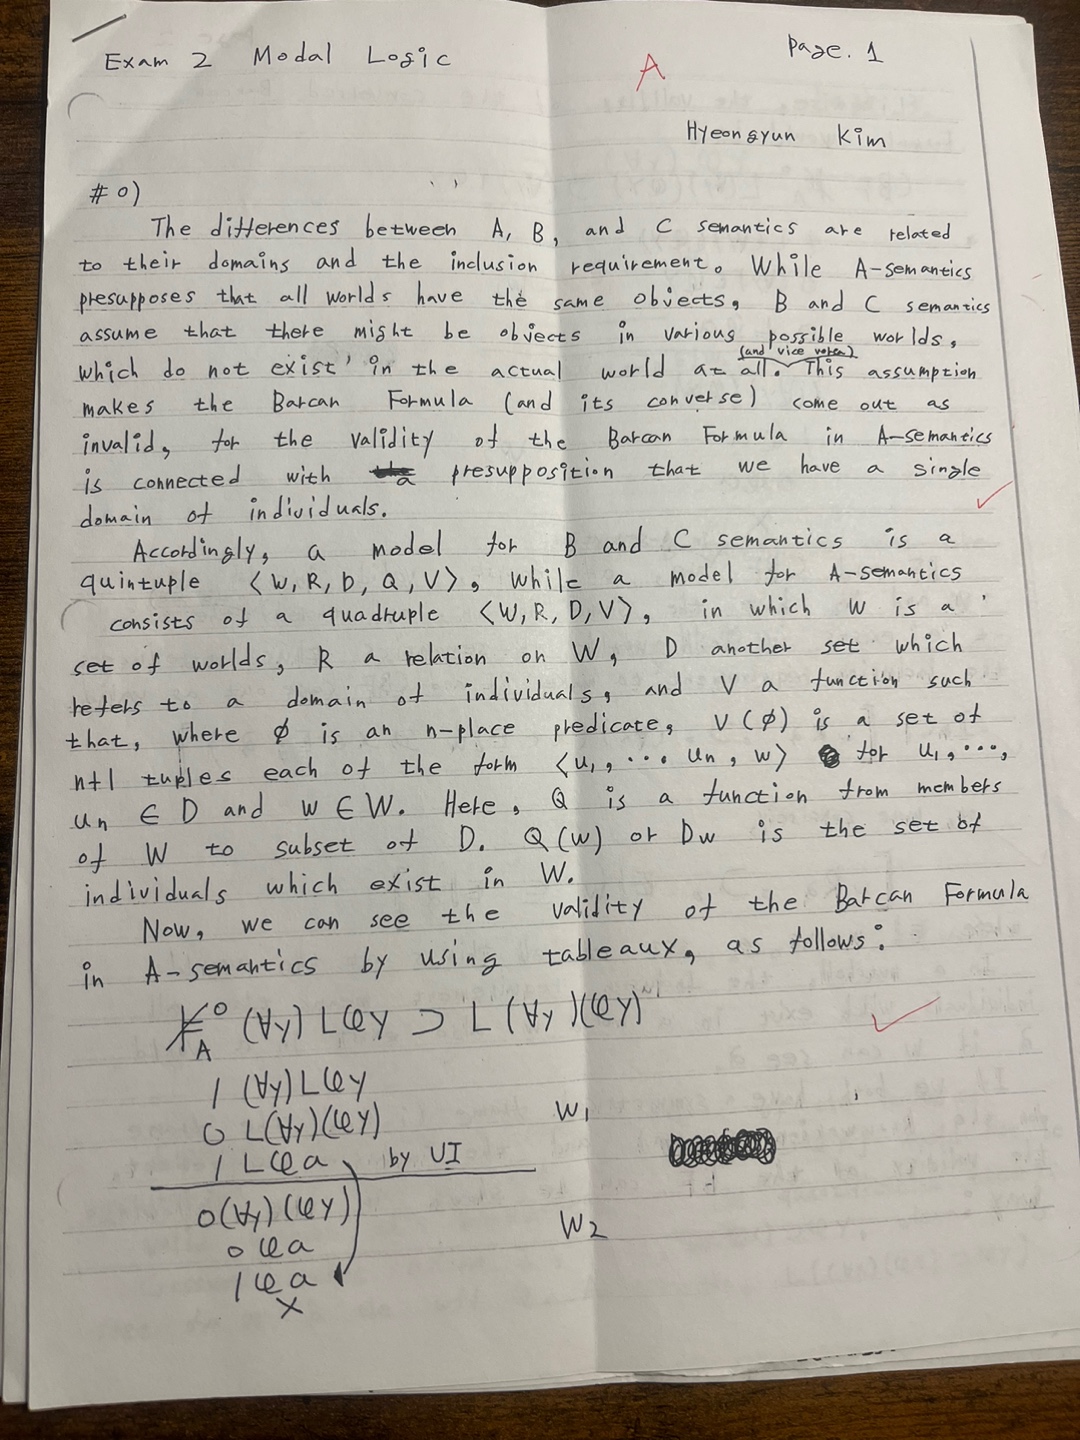 Exam 2 Modal Logic
Page. 1
A
Hyeongyun Kim
# 0)
The differences between A, B, and C semantics are related
to their domains and the inclusion requirement. While A-semantics
presupposes that all worlds have the same objects, B and C semantics
assume that there might be objects in various possible worlds,
which do not exist in the actual world at all. (and vice versa) This assumption
makes the Barcan Formula (and its converse) come out as
invalid, for the validity of the Barcan Formula in A-semantics
is connected with a presupposition that we have a single
domain of individuals.
Accordingly, a model for B and C semantics is a
quintuple ⟨W, R, D, Q, V⟩, while a model for A-semantics
consists of a quadruple ⟨W, R, D, V⟩, in which W is a
set of worlds, R a relation on W, D another set which
refers to a domain of individuals, and V a function such
that, where φ is an n-place predicate, V(φ) is a set of
n+1 tuples each of the form ⟨u1, ... un, w⟩ for u1, ...,
un ∈ D and w ∈ W. Here, Q is a function from members
of W to subset of D. Q(w) or Dw is the set of
individuals which exist in W.
Now, we can see the validity of the Barcan Formula
in A-semantics by using tableaux, as follows:
⊭⁰A (∀y) Lφy ⊃ L(∀y)(φy)
1 (∀y)Lφy
0 L(∀y)(φy) W1
1 Lφa by UI
0(∀y)(φy) W2
0 φa
1 φa
x